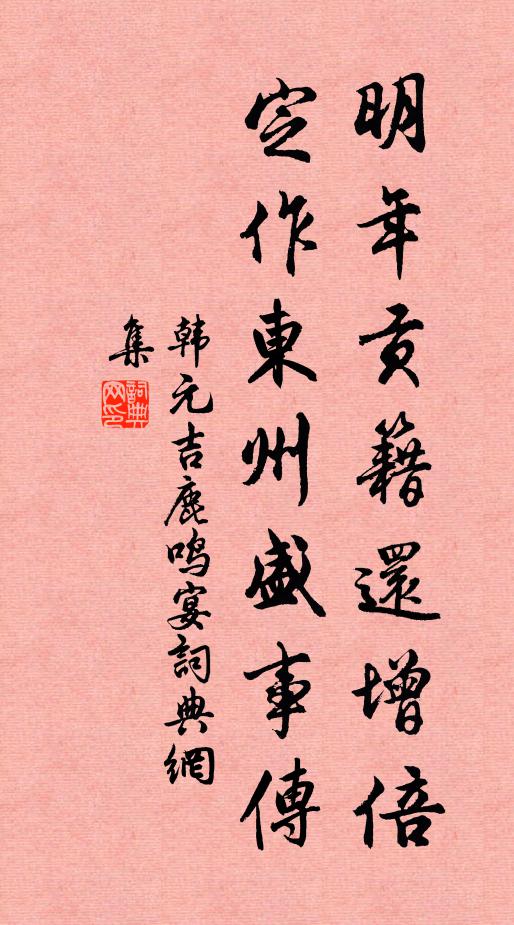 明年貢籍還增倍
定作東州盛事傳
韩元吉鹿鸣宴詞典網
集
詞典
网印